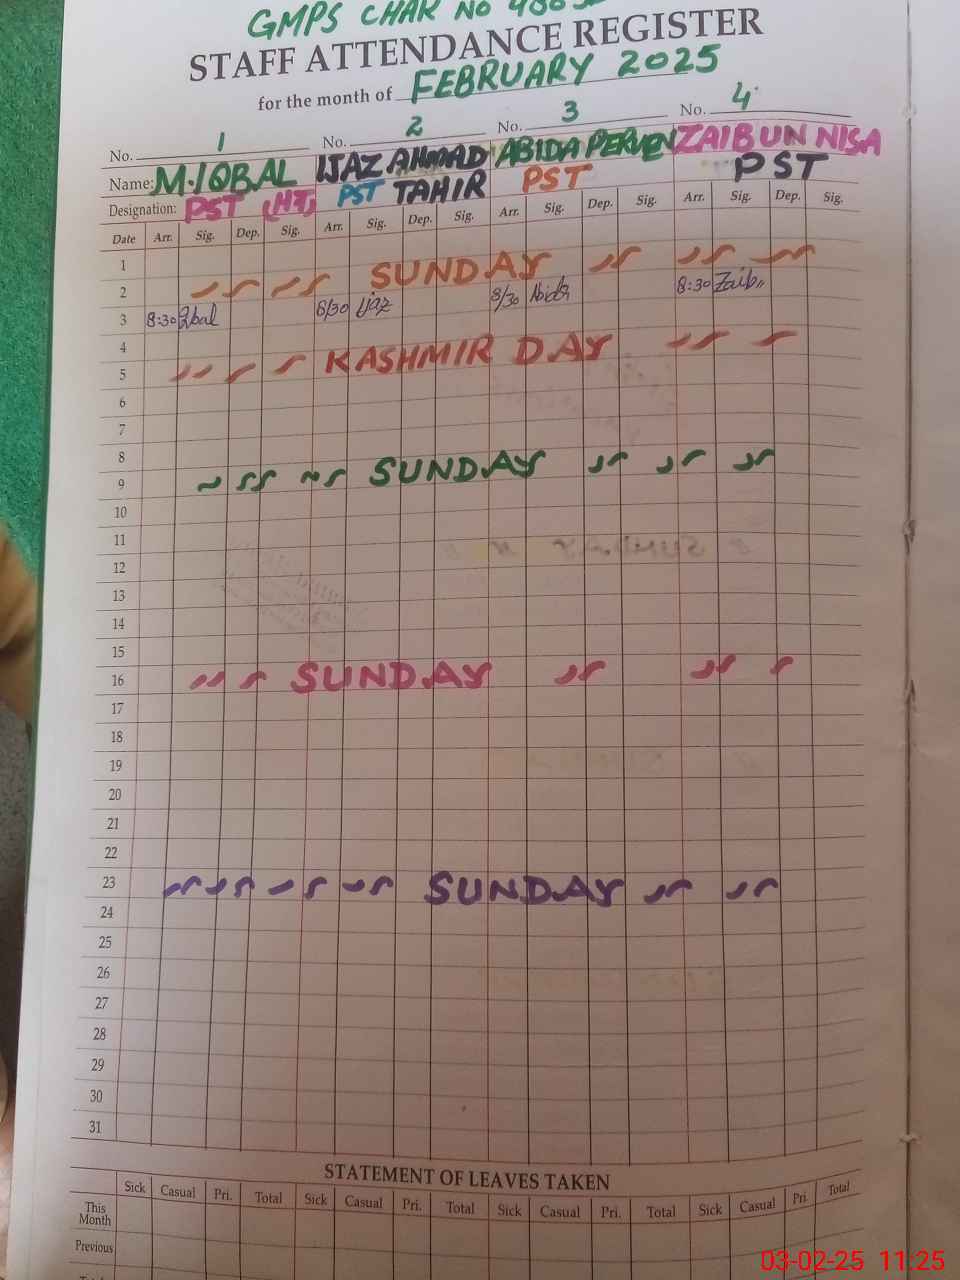 GMPS CHAK NO
STAFF ATTENDANCE REGISTER
for the month of FEBRUARY 2025
No. 1 No. 2 No. 3 No. 4
Name: M.IQBAL IJAZ AHMAD TAHIR ABIDA PERVEEN ZAIB UN NISA
Designation: PST (HT) PST PST PST
Date Arr. Sig. Dep. Sig. Arr. Sig. Dep. Sig. Arr. Sig. Dep. Sig. Arr. Sig. Dep. Sig.
1
2 SUNDAY
3 8:30 Iqbal 8/30 Ijaz 8/30 Abida 8:30 Zaib
4
5 KASHMIR DAY
6
7
8
9 SUNDAY
10
11
12
13
14
15
16 SUNDAY
17
18
19
20
21
22
23 SUNDAY
24
25
26
27
28
29
30
31
STATEMENT OF LEAVES TAKEN
Sick Casual Pri. Total Sick Casual Pri. Total Sick Casual Pri. Total Sick Casual Pri. Total
This Month
Previous
03-02-25 11:25